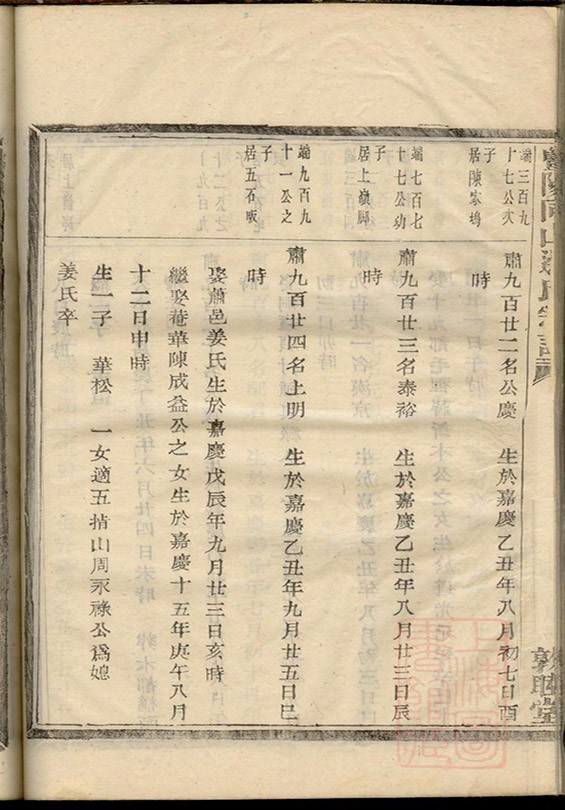 端三百九
十七公次
子
居陳家塢
肅九百廿二名公慶　生於嘉慶乙丑年八月初七日酉
時
端七百七
十七公幼
子
居上嶺脚
肅九百廿三名泰裕　生於嘉慶乙丑年八月廿三日辰
時
端九百九
十一公之
子
居五石坂
肅九百廿四名士明　生於嘉慶乙丑年九月廿五日巳
時
娶蕭邑姜氏生於嘉慶戊辰年九月廿三日亥時
繼娶菴華陳成益公之女生於嘉慶十五年庚午八月
十二日申時
生一子　華松　一女適五指山周永祿公爲媳
姜氏卒
敦睦堂